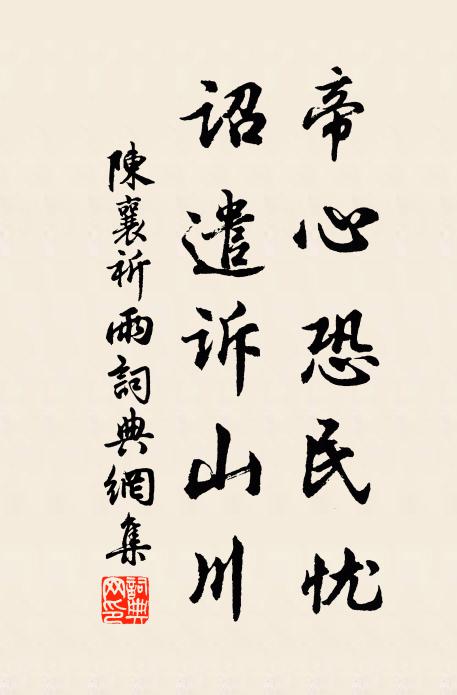 帝心恐民忧
诏遣诉山川
陳襄祈雨詞典網集
詞典网印